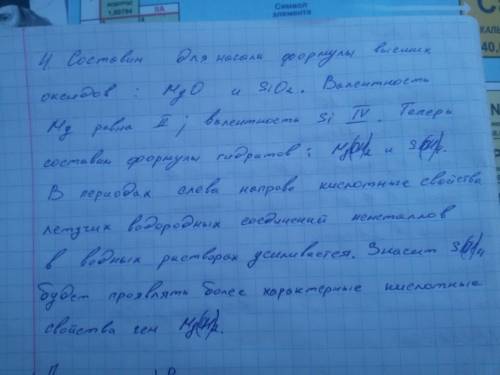 Символ
элемента
1,00794
9A
40,
4) Составим для начала формулы высших
оксидов : MgO и SiO₂. Валентность
Mg равна II ; валентность Si IV. Теперь
составим формулы гидратов : Mg(OH)₂ и
В периодах слева направо кислотные свойства
летучих водородных соединений неметаллов
в водных растворах усиливается. Значит
будет проявлять более характерные кислотные
свойства чем Mg(OH)₂.